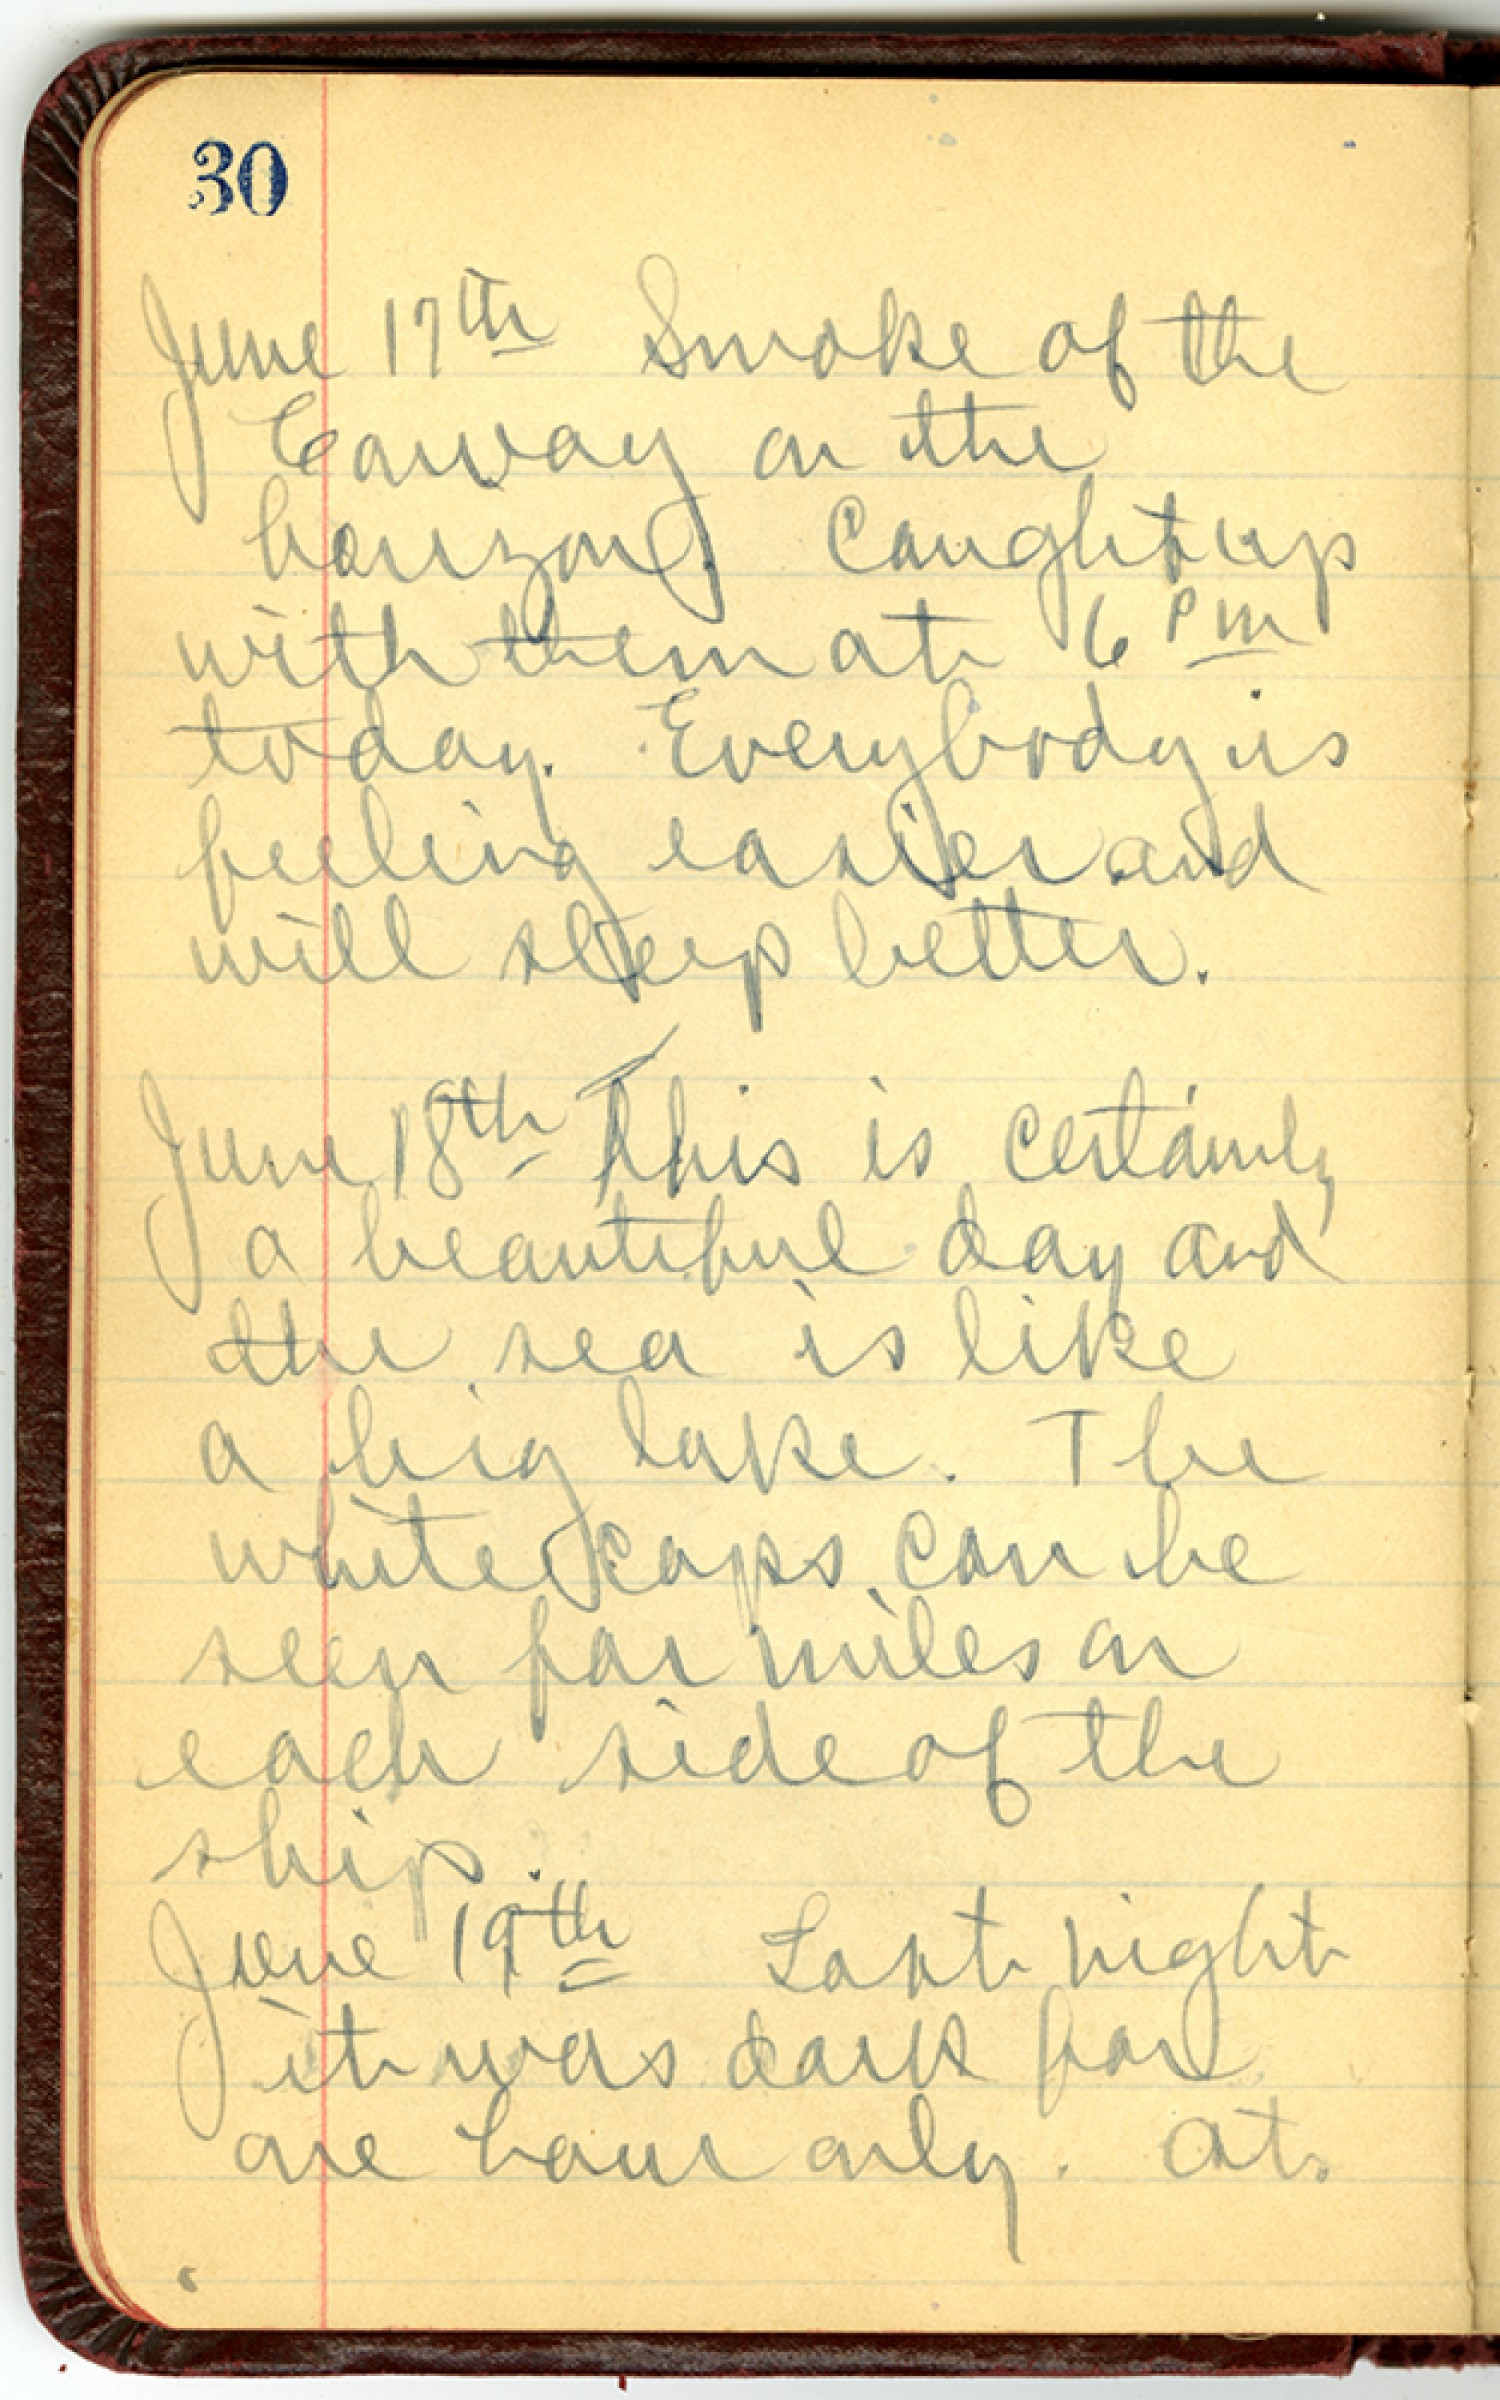 30
June 17th Smoke of the
Conway on the
horizon. Caught up
with them at 6 PM
today. Everybody is
feeling easier and
will sleep better.
June 18th This is certainly
a beautiful day and
the sea is like
a big lake. The
white caps can be
seen for miles on
each side of the
ship.
June 19th Last night
it was dark for
one hour only. At